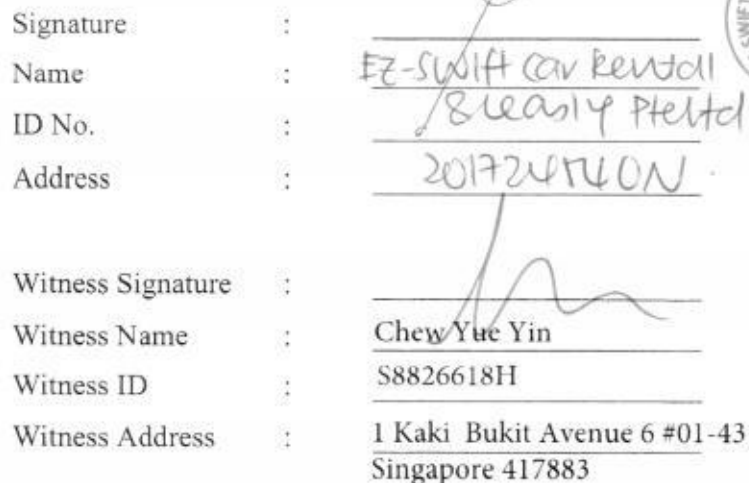 Signature :
Name : EZ-Swift Car Rental
ID No. : & Leasing Pte Ltd
Address :
Witness Signature :
Witness Name : Chew Yue Yin
Witness ID : S8826618H
Witness Address : 1 Kaki Bukit Avenue 6 #01-43
Singapore 417883